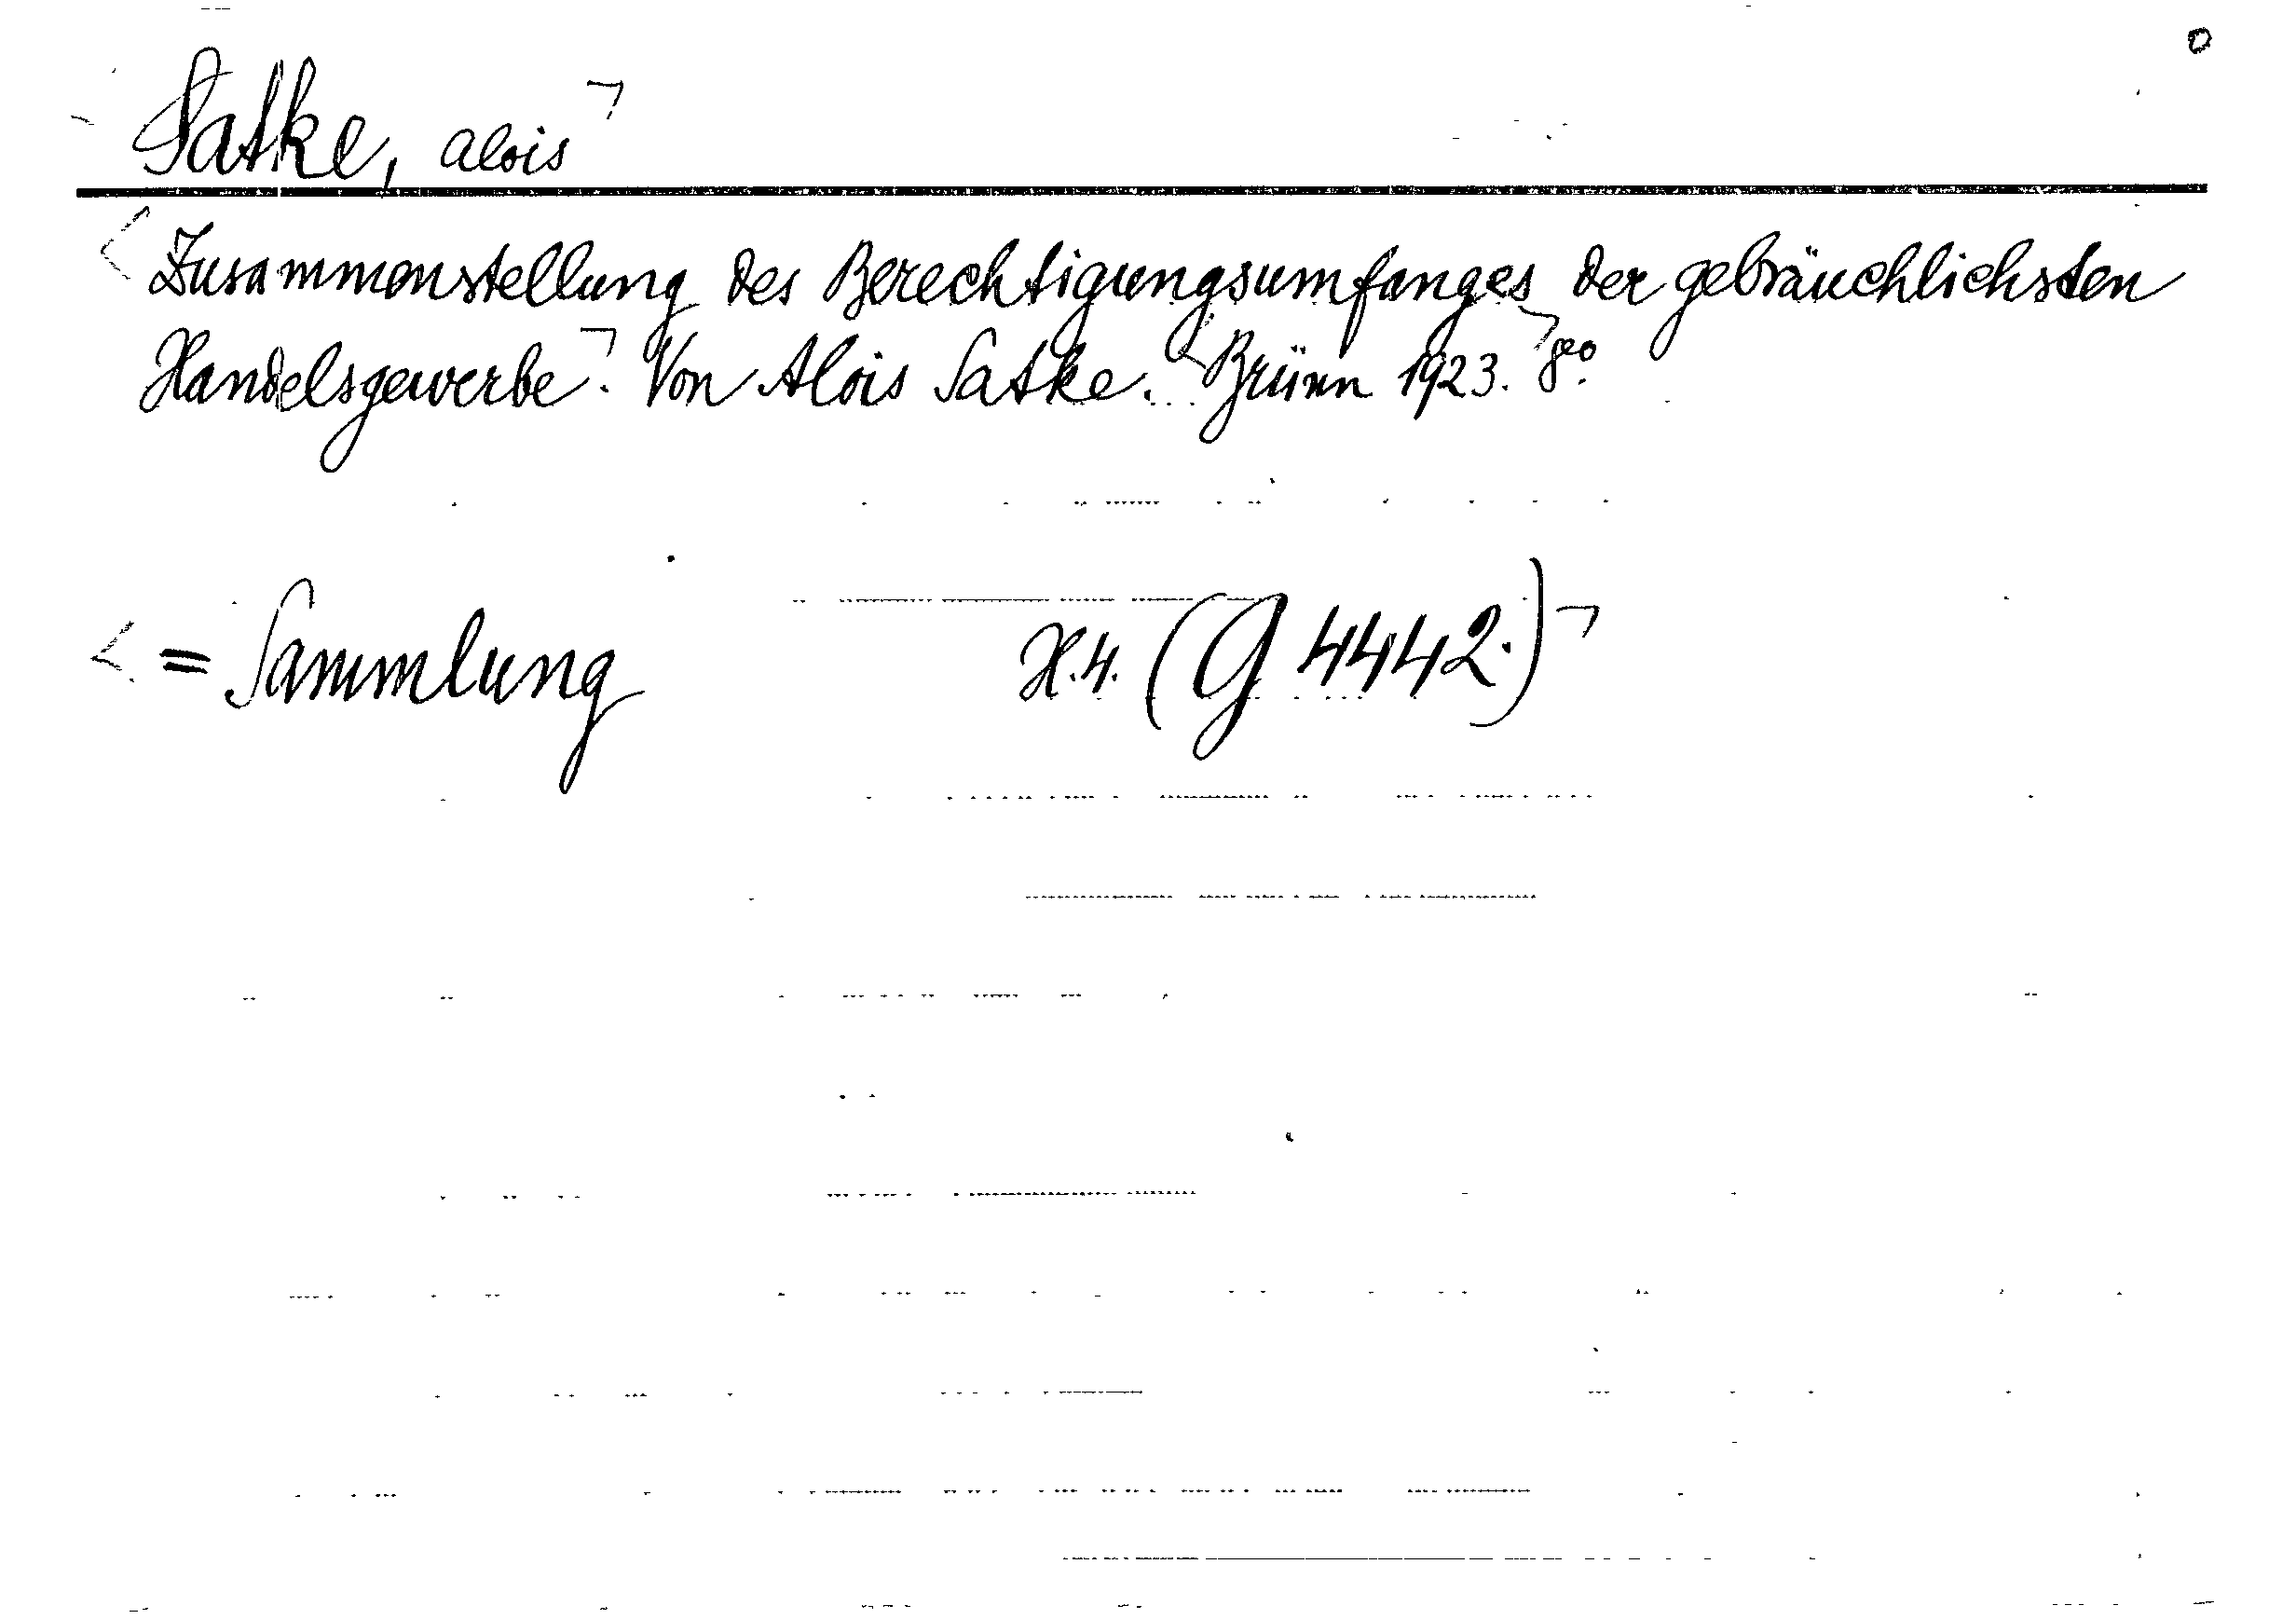 Satke, Alois
Zusammenstellung des Berechtigungsumfanges der gebräuchlichsten
Handelsgewerbe. Von Alois Satke. Brünn 1923. 8°.
= Sammlung H.4. (G 4442.)